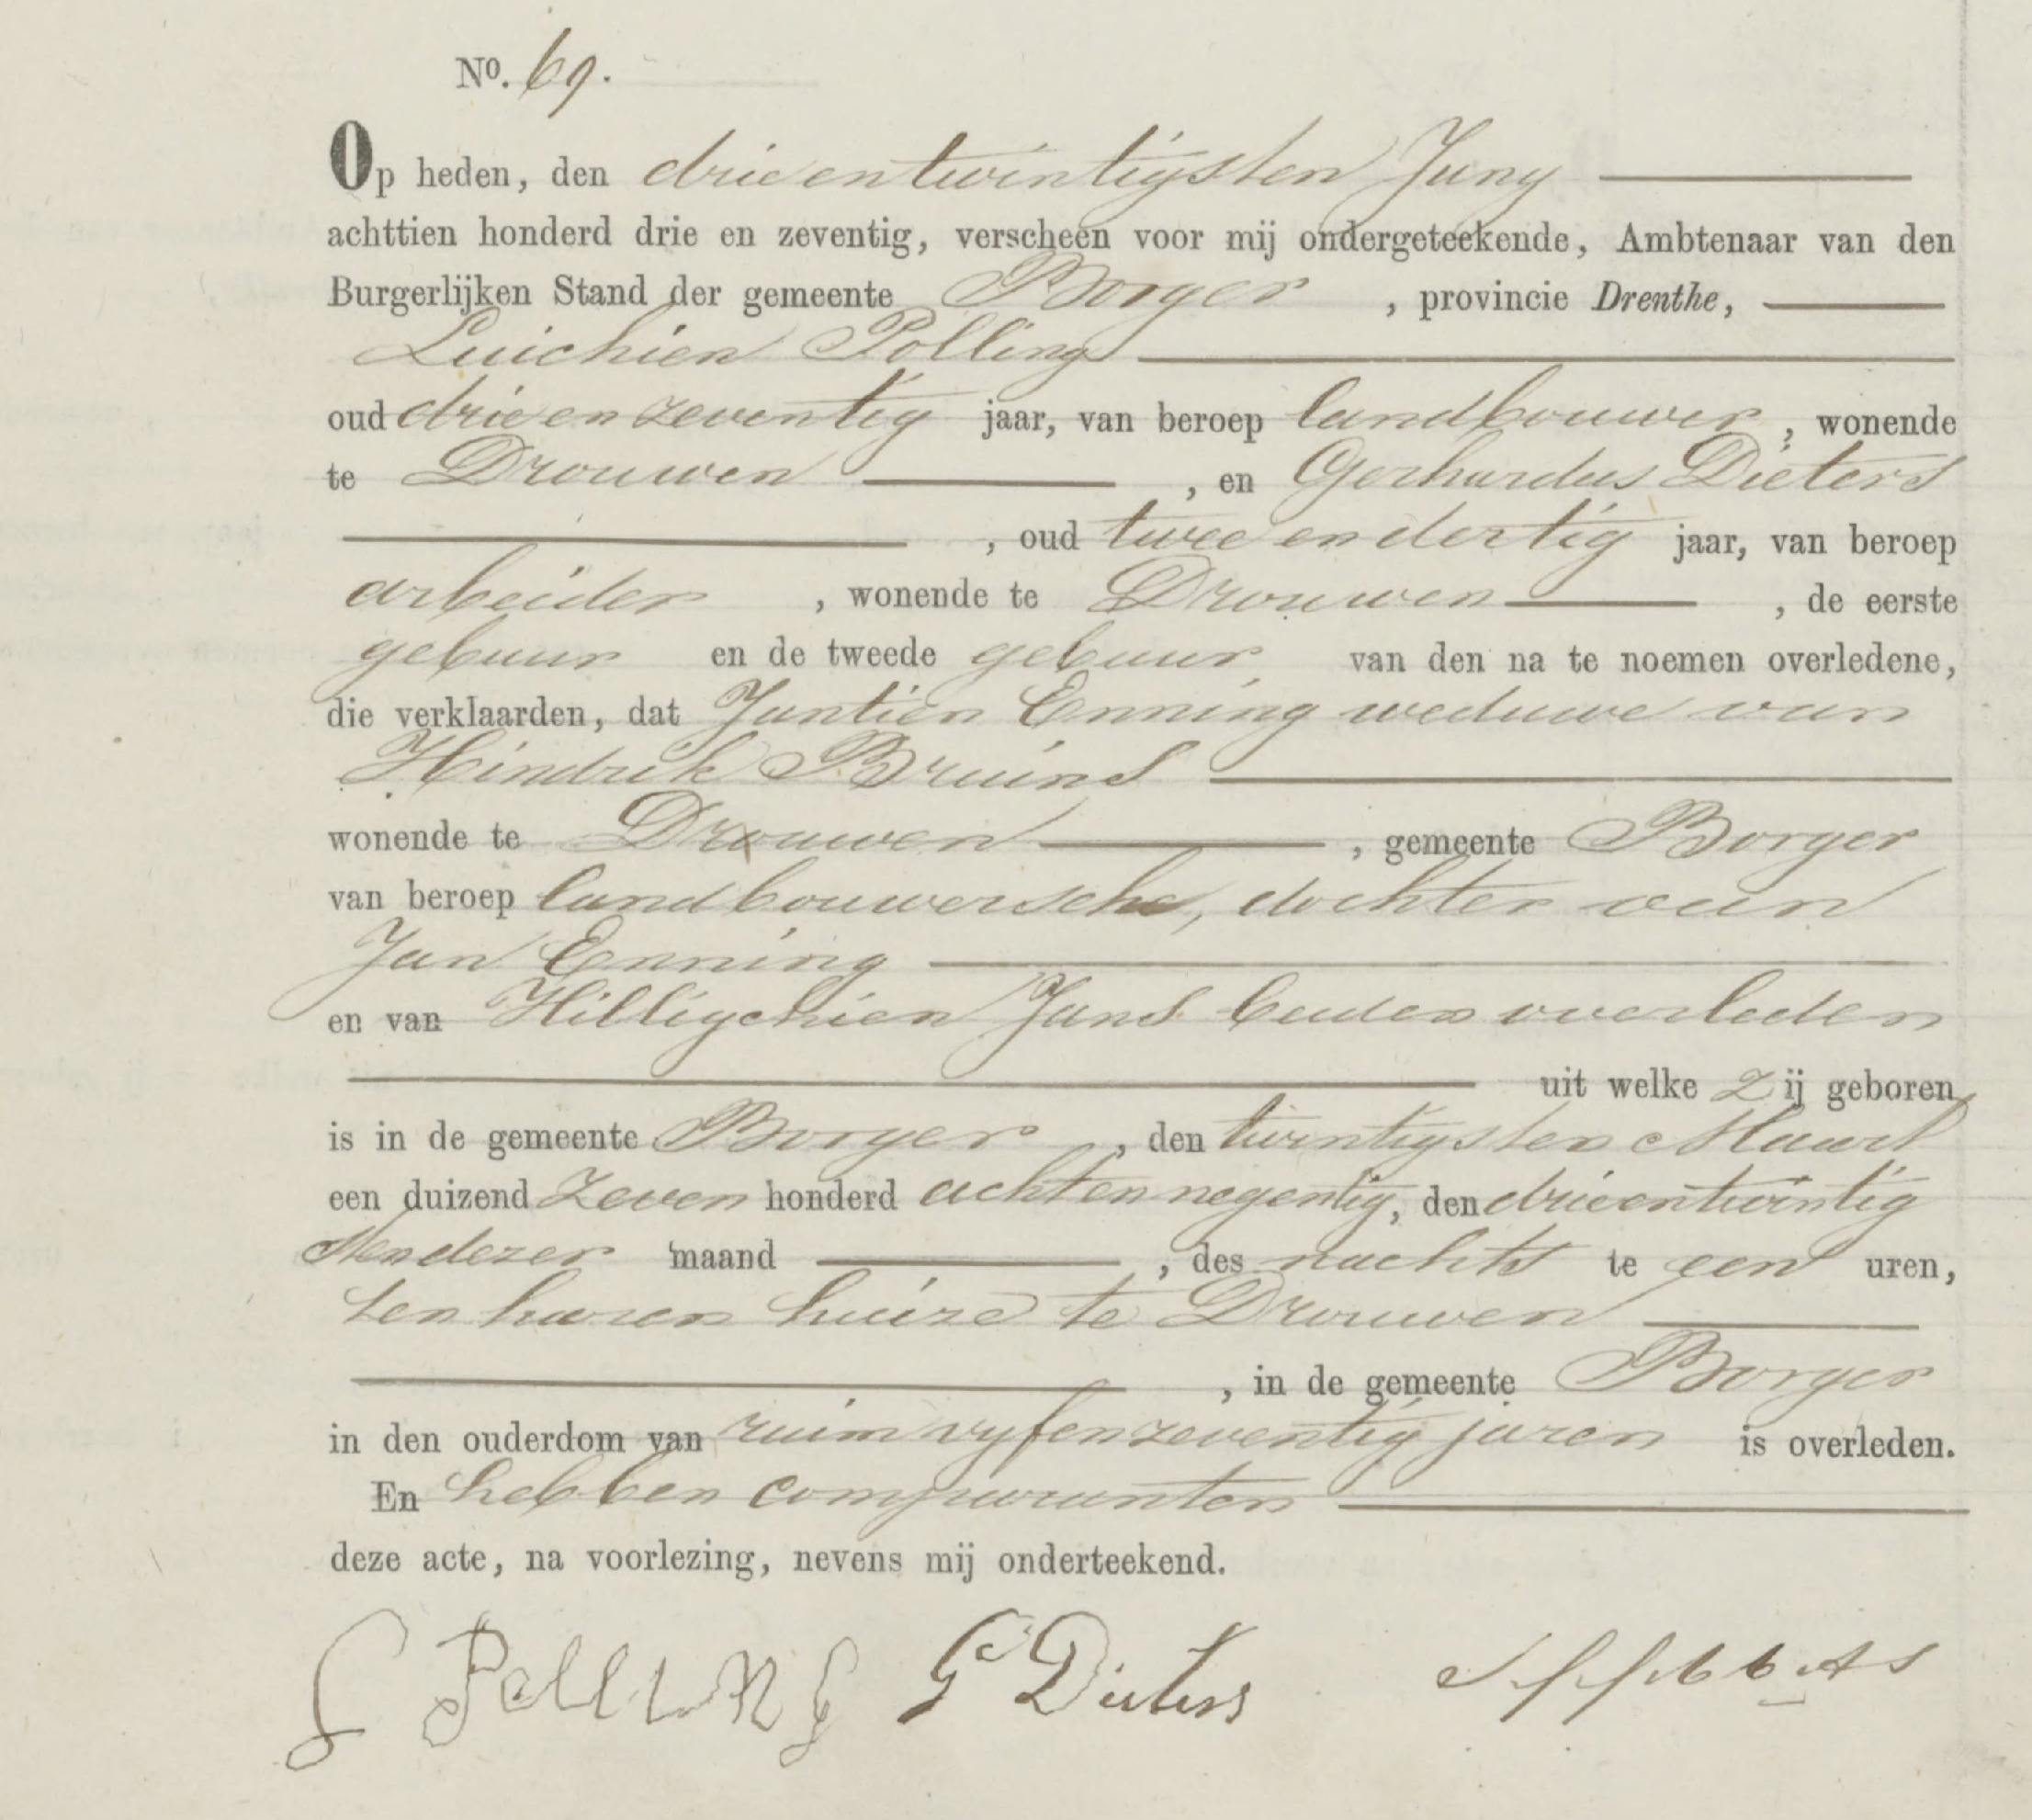 No. 69.
Op heden, den drieentwintigsten Juny
achttien honderd drie en zeventig, verscheen voor mij ondergeteekende, Ambtenaar van den
Burgerlijken Stand der gemeente Borger, provincie Drenthe,
Luichien Polling
oud drieenzeventig jaar, van beroep landbouwer, wonende
te Drouwen, en Gerhardus Dieters
, oud tweeendertig jaar, van beroep
arbeider, wonende te Drouwen, de eerste
gebuur en de tweede gebuur van den na te noemen overledene,
die verklaarden, dat Jantien Enning weduwe van
Hindrik Bruins
wonende te Drouwen, gemeente Borger
van beroep landbouwersche, dochter van
Jan Enning
en van Hilligchien Jans beiden overleden
uit welke zij geboren
is in de gemeente Borger, den twintigsten Maart
een duizend zeven honderd achtennegentig, den drieentwintig
sten dezer maand, des nachts te een uren,
ten haren huize te Drouwen
, in de gemeente Borger
in den ouderdom van ruim vyfenzeventig jaren is overleden.
En hebben comparanten
deze acte, na voorlezing, nevens mij onderteekend.
L Polling G Dieters